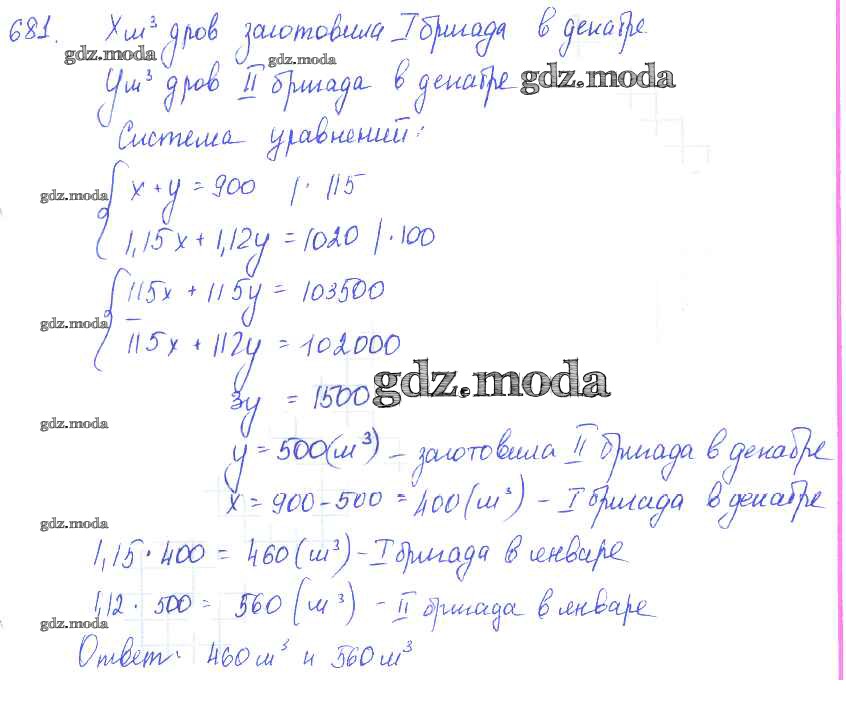 681. Хм³ дров заготовила I бригада в декабре.
gdz.moda gdz.moda
Ум³ дров II бригада в декабре gdz.moda
Система уравнений:
gdz.moda x + y = 900 | · 115
1,15x + 1,12y = 1020 | · 100
115x + 115y = 103500
gdz.moda –
115x + 112y = 102000
3y = 1500 gdz.moda
gdz.moda
y = 500 (м³) – заготовила II бригада в декабре
x = 900 – 500 = 400 (м³) – I бригада в декабре
gdz.moda
1,15 · 400 = 460 (м³) – I бригада в январе
1,12 · 500 = 560 (м³) – II бригада в январе
gdz.moda
Ответ: 460 м³ и 560 м³